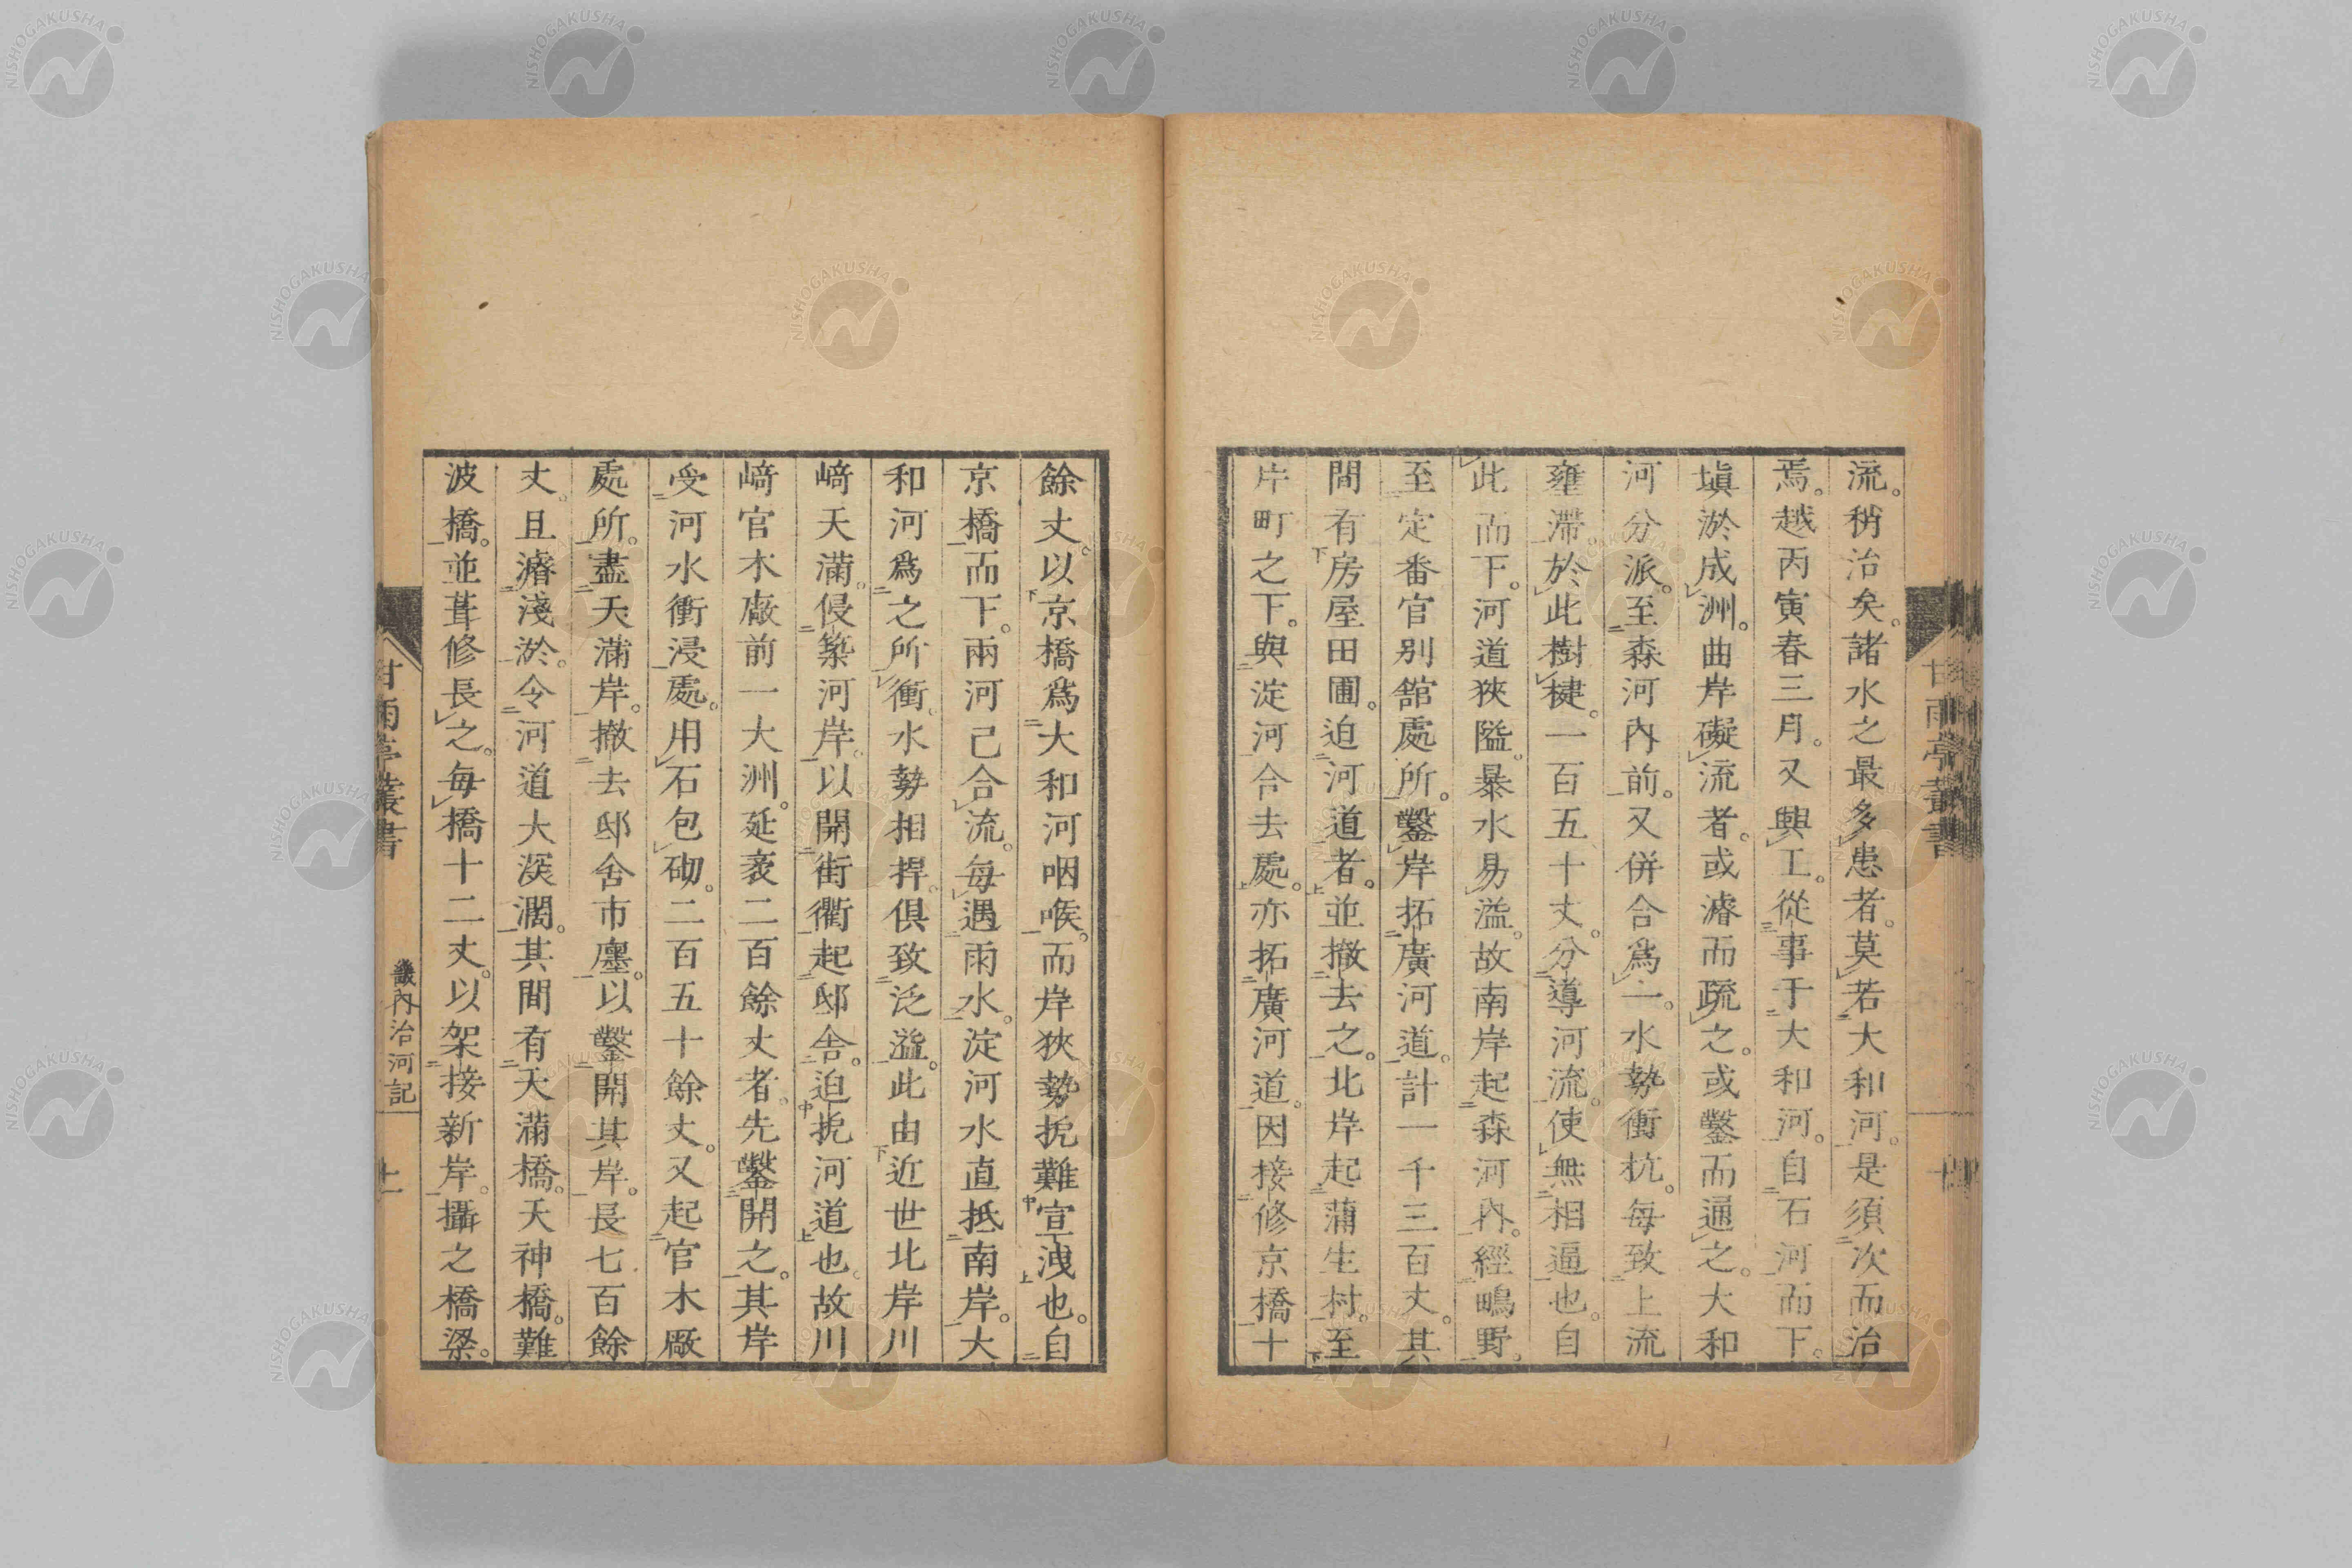 流。稍治矣。諸水之最多患者。莫若大和河。是須次而治
焉。越丙寅春三月。又興工。從事于大和河。自石河而下。
塡淤成洲。曲岸礙流者。或濬而疏之。或鑿而通之。大和
河分派。至森河內前。又併合爲一。水勢衝抗。每致上流
壅滯於此樹楗。一百五十丈。分導河流。使無相逼也。自
此而下。河道狹隘。暴水易溢。故南岸起森河內。經鴫野。
至定番官別舘處所。鑿岸拓廣河道。計一千三百丈。其
間有房屋田圃。迫河道者。並撤去之。北岸起蒲生村。至
片町之下。與淀河合去處。亦拓廣河道。因接修京橋十
餘丈。以京橋爲大和河咽喉。而岸狹勢扼難宣洩也。自
京橋而下。兩河已合流。每遇雨水。淀河水直抵南岸。大
和河爲之所衝。水勢相捍。俱致泛溢。此由近世北岸川
﨑天滿。侵築河岸。以開街衢起邸舍。迫扼河道也。故川
﨑官木廠前一大洲。延袤二百餘丈者。先鑿開之。其岸
受河水衝浸處。用石包砌。二百五十餘丈。又起官木厰
處所。盡天滿岸。撤去邸舍市廛。以鑿開其岸。長七百餘
丈。且濬淺淤。令河道大深濶。其間有天滿橋。天神橋。難
波橋。並葺修長之。每橋十二丈。以架接新岸。攝之橋梁。
甘雨亭叢書
畿內治河記